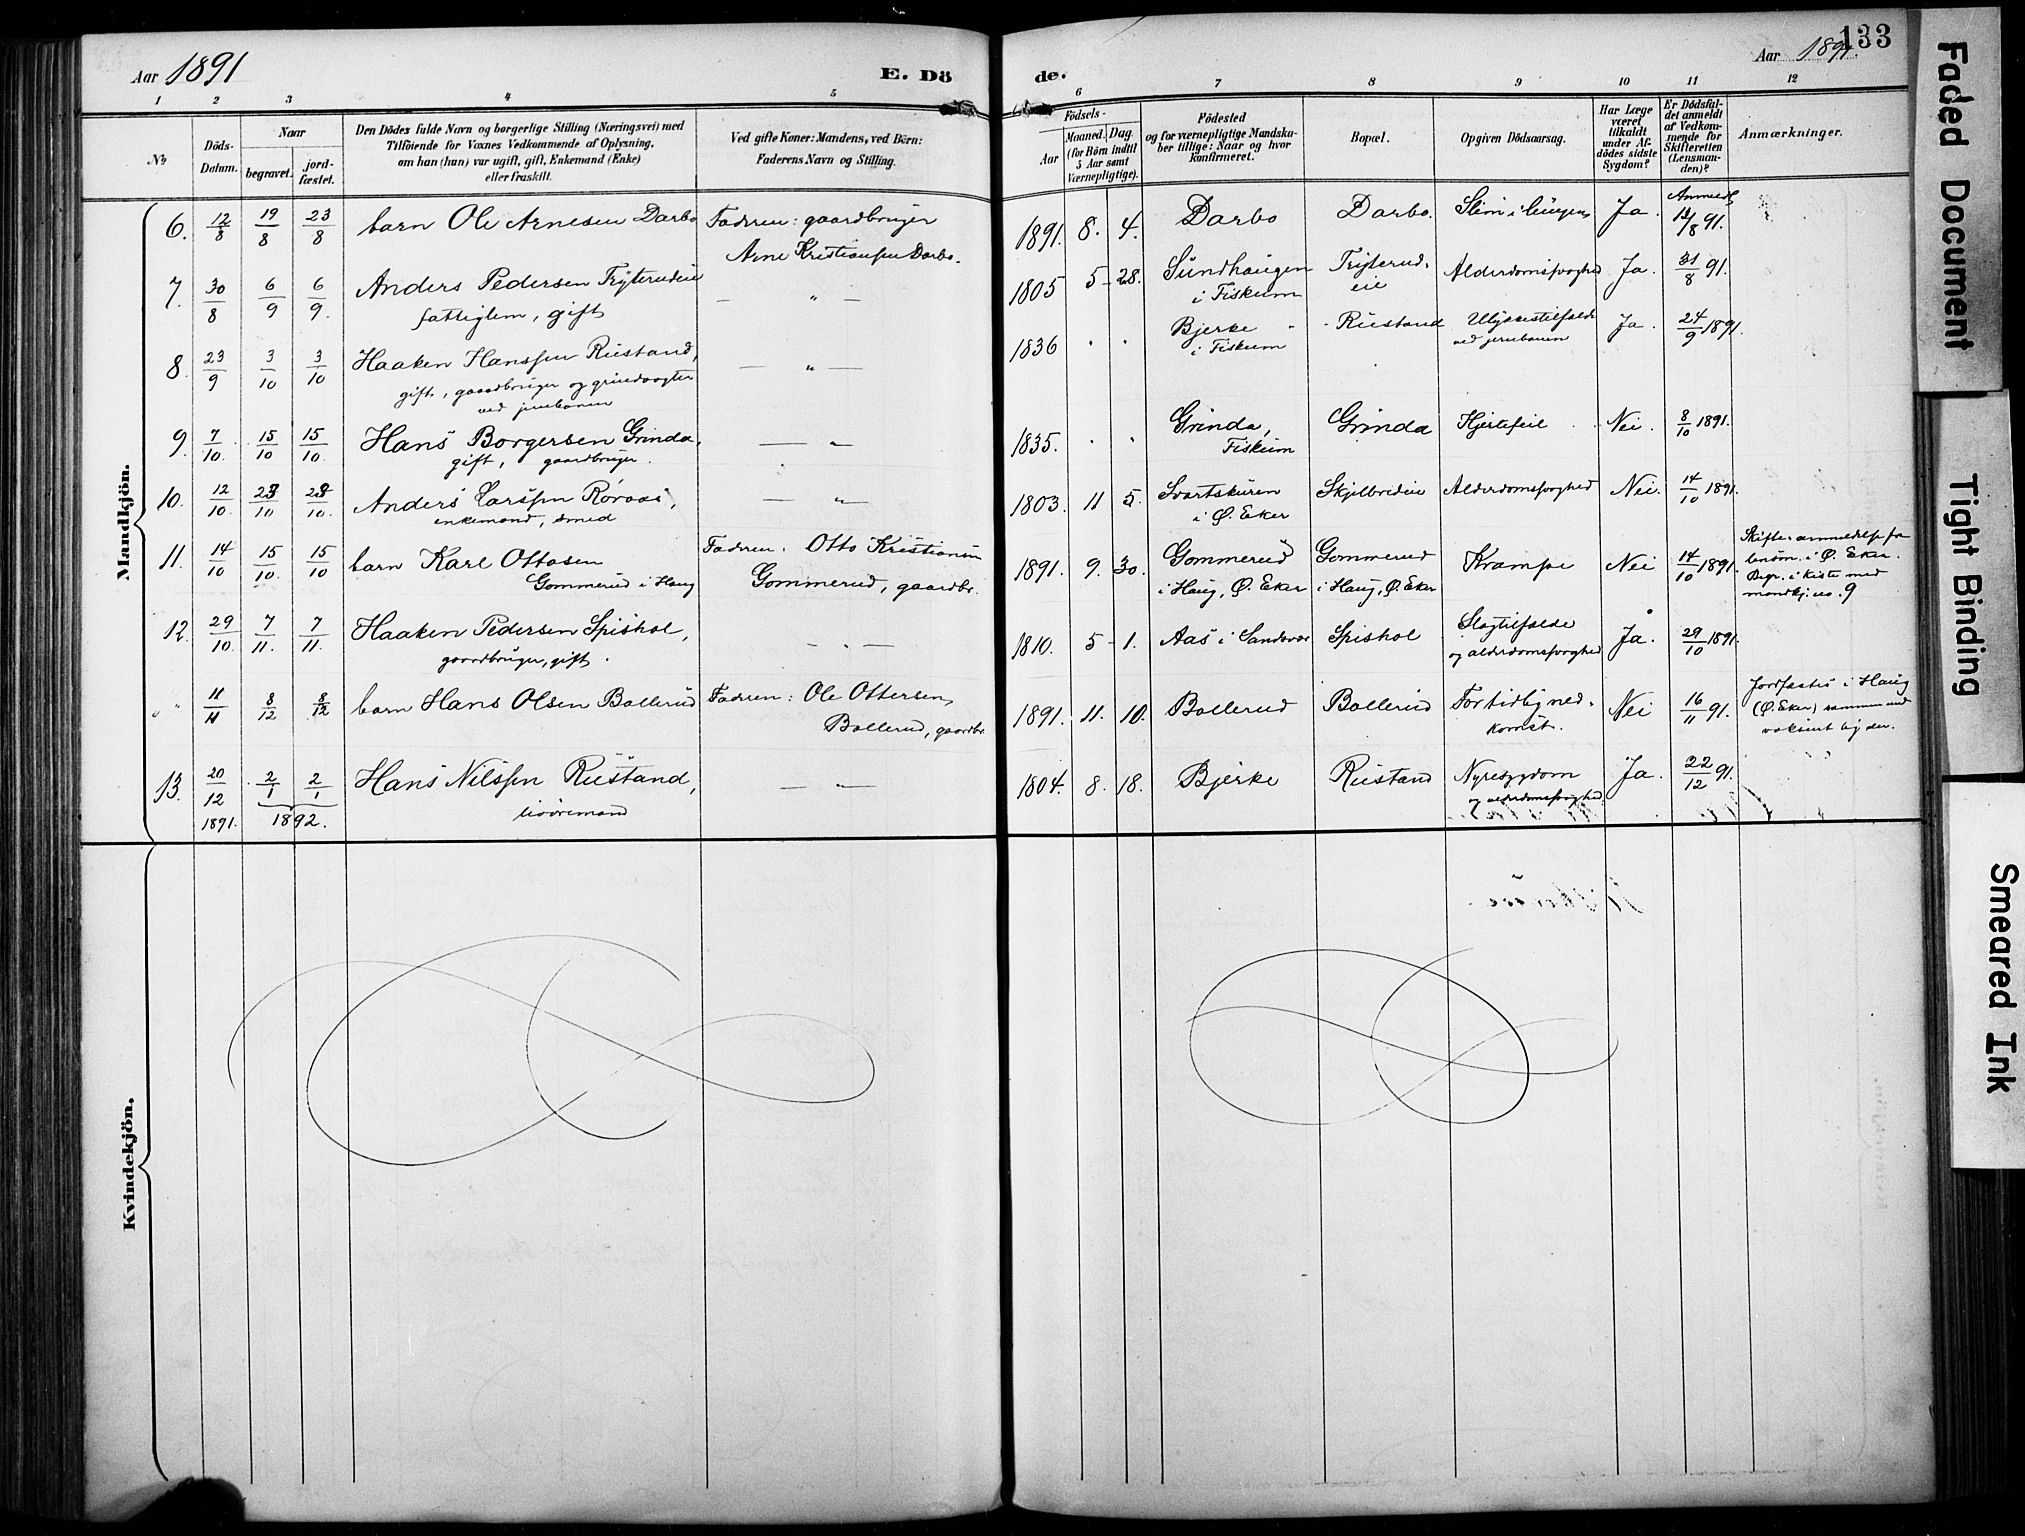 Aar 1891
E. Dö
1 2 3 4 5
№
Döds-
Datum.
Naar
begravet.
jord-
fæstet.
Den Dödes fulde Navn og borgerlige Stilling (Næringsvei) med
Tilföiende for Voxnes Vedkommende af Oplysning,
om han (hun) var ugift, gift, Enkemand (Enke)
eller fraskilt.
Ved gifte Koner: Mandens, ved Börn:
Faderens Navn og Stilling.
Mandkjön.
6. 12/8 19/8 23/8 barn Ole Arnesen Darbo Faderen: gaardbruger
Arne Kristiansen Darbo.
7. 30/8 6/9 6/9. Anders Pedersen Tryterudeie — „ —
fattiglem, gift
8. 23/9 3/10 3/10 Haaken Hanssen Rustand, — „ —
gift, gaardbruger og grindvogter
ved jernbanen
9. 7/10. 15/10 15/10. Hans Borgersen Grinda, — „ —
gift, gaardbruger.
10. 12/10. 23/10 23/10. Anders Larssen Röraas, — „ —
enkemand, smed
11. 14/10 15/10. 15/10 barn Karl Ottosen Faderen: Otto Kristiansen
Gommerud i Haug Gommerud, gaardbr.
12. 29/10. 7/11. 7/11. Haaken Pedersen Spishol, - „ —
gaardbruger, gift.
„ „ 11/11 8/12 8/12 barn Hans Olsen Bollerud Faderen: Ole Ottersen
Bollerud, gaardbr.
13. 20/12 2/1 2/1 Hans Nilssen Rustand, — „ —
1891. 1892. livöremand
Kvindekjön.
133
de. Aar 1891.
6 7 8 9 10 11 12
Födsels-
Aar
Maaned. Dag.
(for Börn indtil
5 Aar samt
Værnepligtige).
Födested
og for værnepligtige Mandska-
ber tillige: Naar og hvor
konfirmeret.
Bopæl.
Opgiven Dödsaarsag.
Har Læge
været
tilkaldt
under Af-
dödes sidste
Sygdom?
Er Dödsfal-
det anmeldt
af Vedkom-
mende for
Skifteretten
(Lensman-
den)?
Anmærkninger.
Anmeldt
1891. 8. 4. Darbo Darbo. Slim i lungen Ja. 12/8 91.
1805 5 - 28. Sundhaugen Tryterud- Alderdomssvaghed Ja. 31/8 91.
i Fiskum eie
1836 Bjerke Rustand Ulykkestilfælde Ja. 24/9 1891.
i Fiskum ved jernbanen
1835. Grinda, Grinda Hjertefeil Nei. 8/10 1891.
Fiskum
1803. 11 5. Svartskuren Skjelbredeie Alderdomssvaghed Nei. 14/10 1891.
i Ø. Eker
1891. 9. 30. Gommerud Gommerud Krampe Nei 14/10 1891. Skifteanmeldelse fra
i Haug, Ø. Eker i Haug, Ø. Eker lensm. i Ø. Eker.
Begr. i kiste med
mandkj. no. 9
1810. 5 - 1. Aas i Sandsvær Spishol Slagtilfælde Ja. 29/10 1891.
og alderdomssvaghed
1891. 11. 10. Bollerud Bollerud For tidlig ned- Nei 16/11 91. Jordfæstet i Haug
komst. (Ø. Eker) sammen med
voksent lig der.
1804. 8. 18. Bjerke Rustand Nyresygdom Ja. 22/12 91.
og alderdomssvaghed.
Faded Document
Tight Binding
Smeared Ink